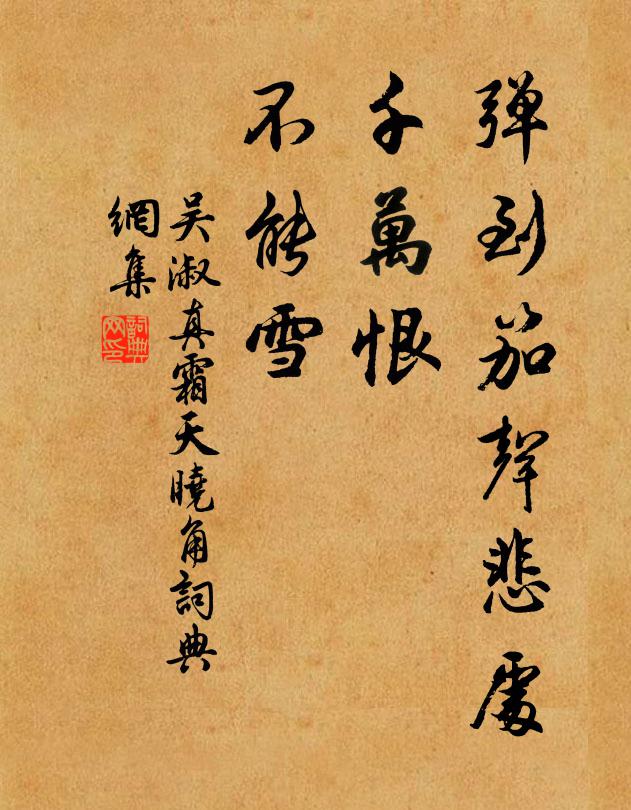 彈到笳聲悲處
千萬恨
不能雪
吴淑真霜天曉角詞典
網集
詞典
网印